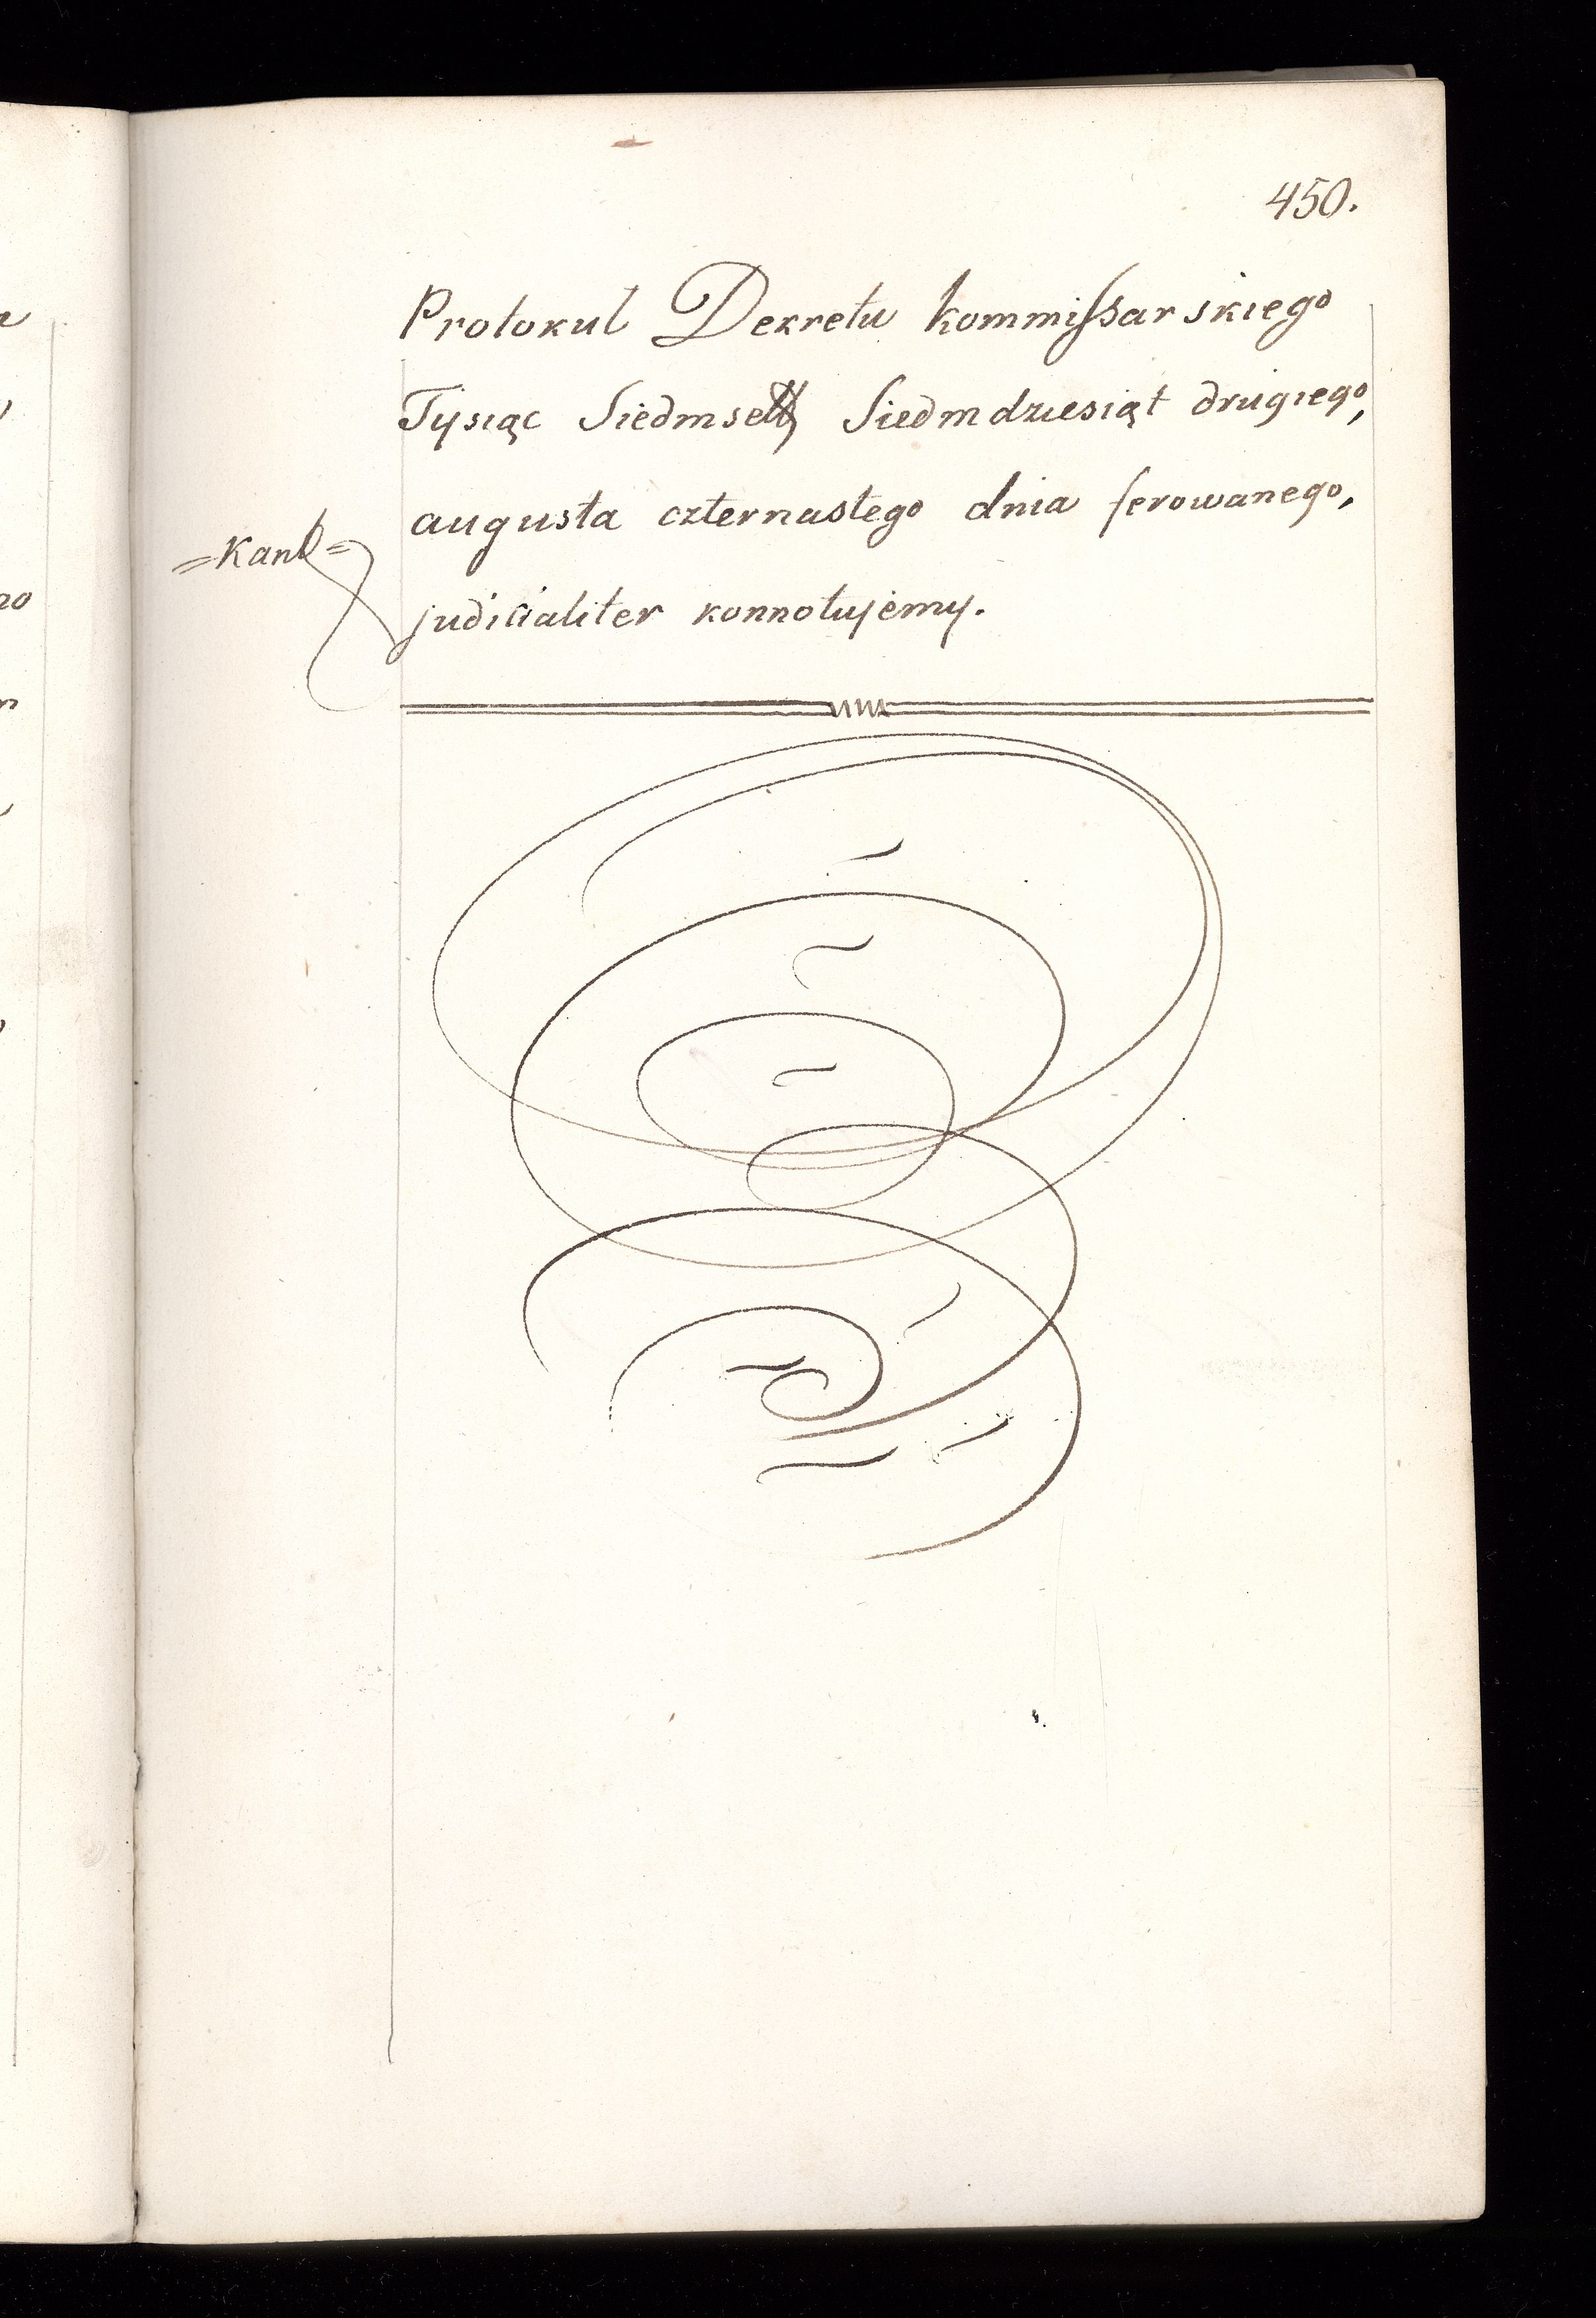 450.
Protokuł Dekretu kommissarskiego
Tysiąc Siedmset Siedmdziesiąt drugiego,
augusta czternastego dnia ferowanego,
judicialiter konnotujemy.